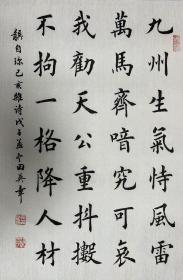 九州生氣恃風雷
萬馬齊喑究可哀
我勸天公重抖擻
不拘一格降人材
龔自珍己亥雜詩戊子孟田英章